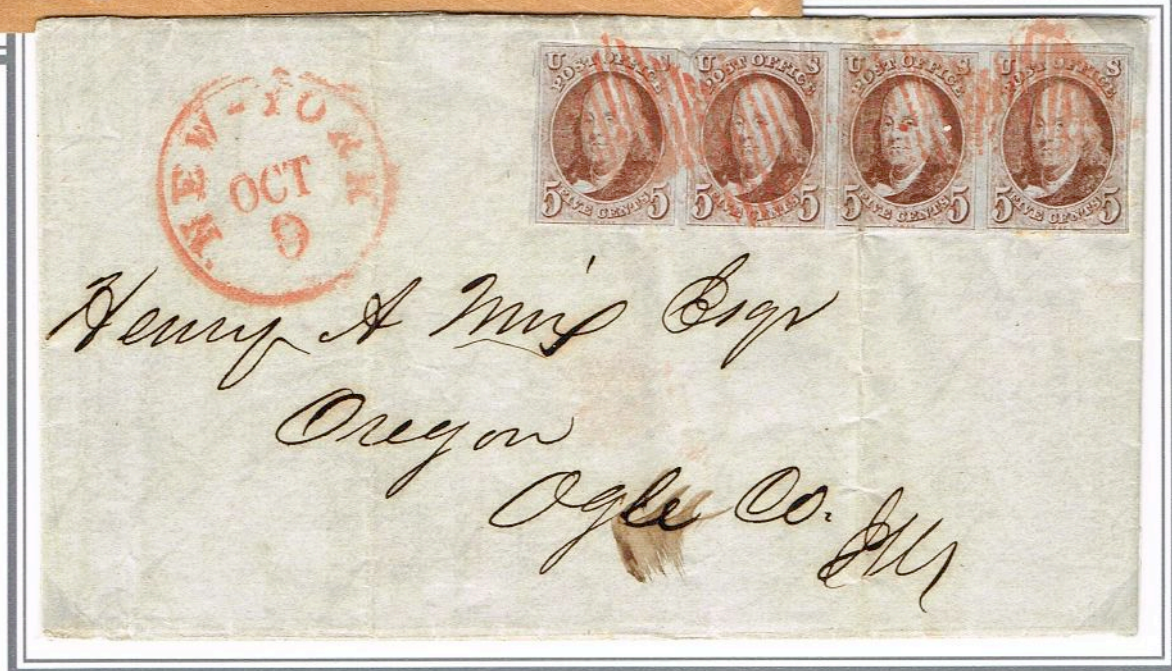 NEW-YORK
OCT
9
U S
POST OFFICE
5 FIVE CENTS 5
U S
POST OFFICE
5 FIVE CENTS 5
U S
POST OFFICE
5 FIVE CENTS 5
U S
POST OFFICE
5 FIVE CENTS 5
Henry A Mix Esqr
Oregon
Ogle Co.
Ills